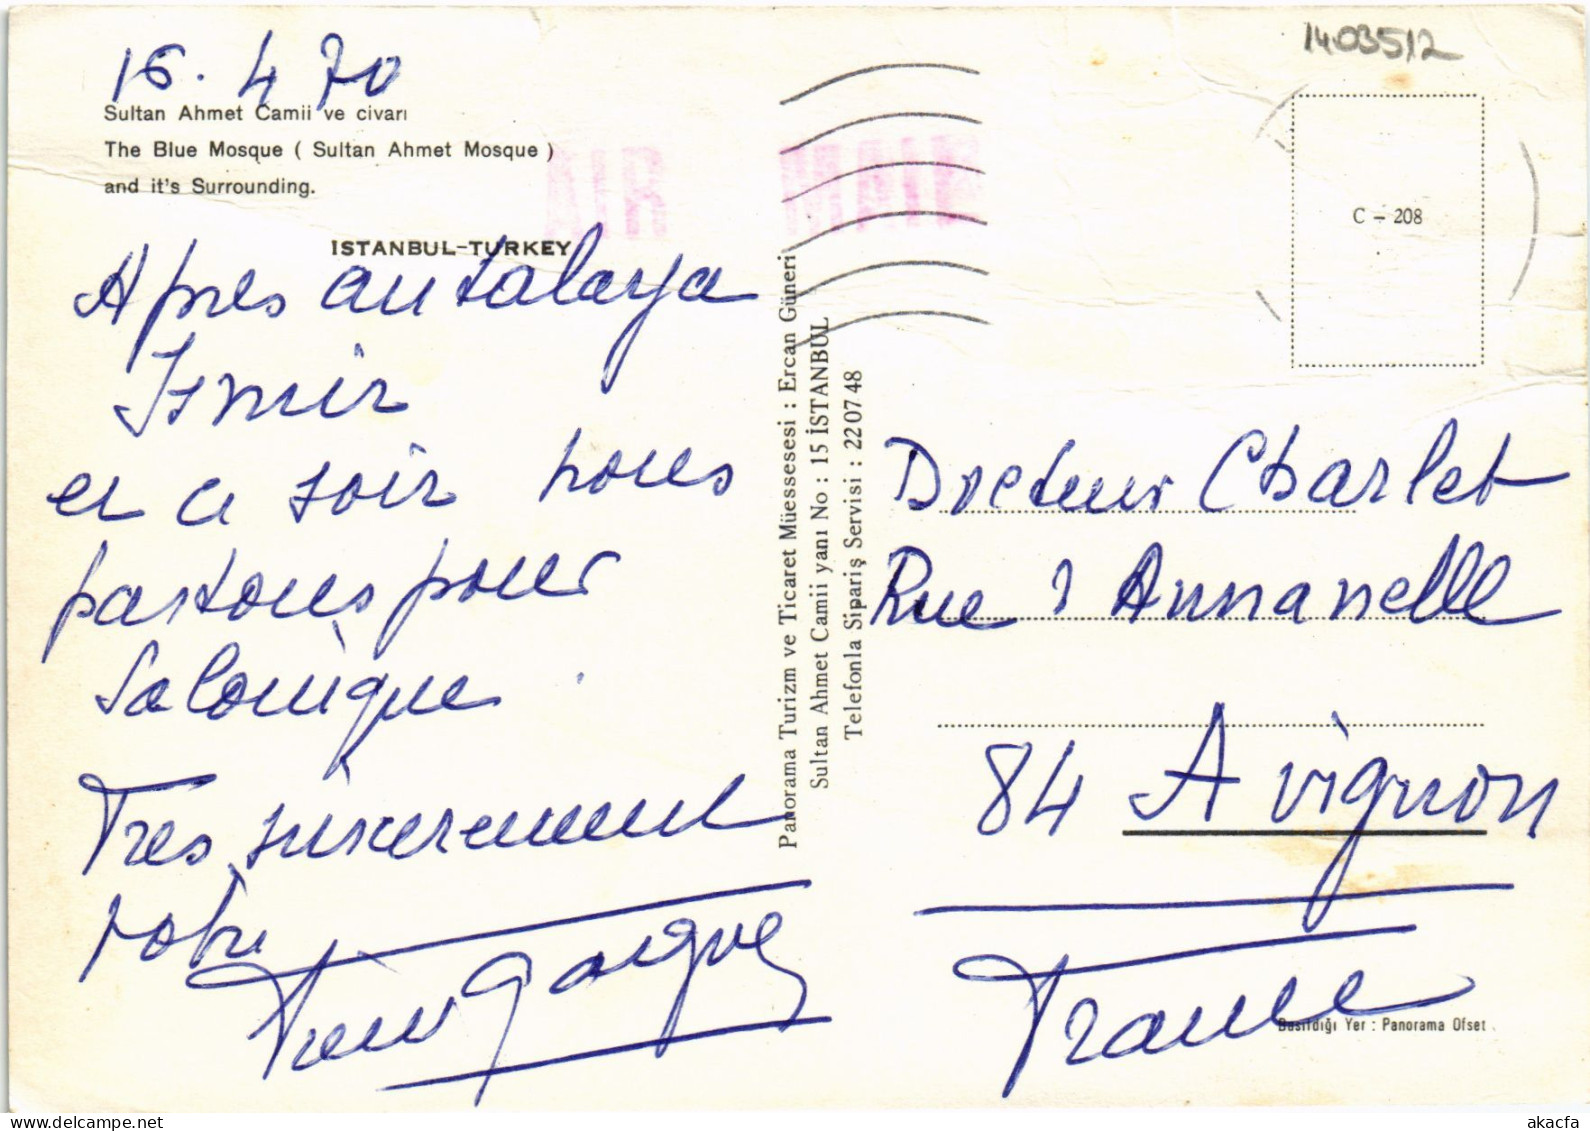 16.4 70
Sultan Ahmet Camii ve civarı
The Blue Mosque ( Sultan Ahmet Mosque )
and it's Surrounding.
ISTANBUL-TURKEY
AIR MAIL
Apres antalaya
Ismir
et ce soir nous
partons pour
Salonique
Tres sincerement
votre
Panorama Turizm ve Ticaret Müessesesi : Ercan Güneri
Sultan Ahmet Camii yanı No : 15 İSTANBUL
Telefonla Sipariş Servisi : 22 07 48
1403512
C - 208
Docteur Charlet
Rue Annanelle
84 Avignon
France
Basıldığı Yer : Panorama Ofset
akacfa.delcampe.net